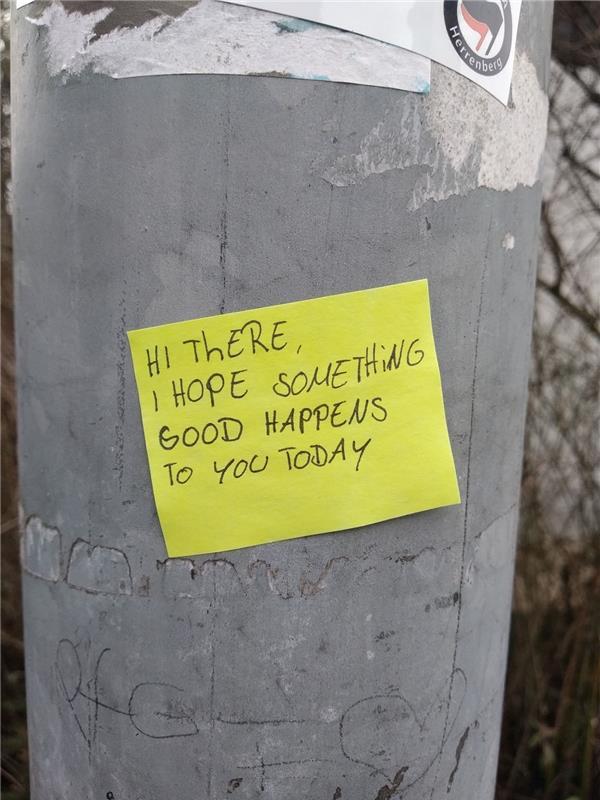 Herrenberg
HI ThERE,
I HOPE SOMETHiNG
GOOD HAPPENS
To YOU TODAY